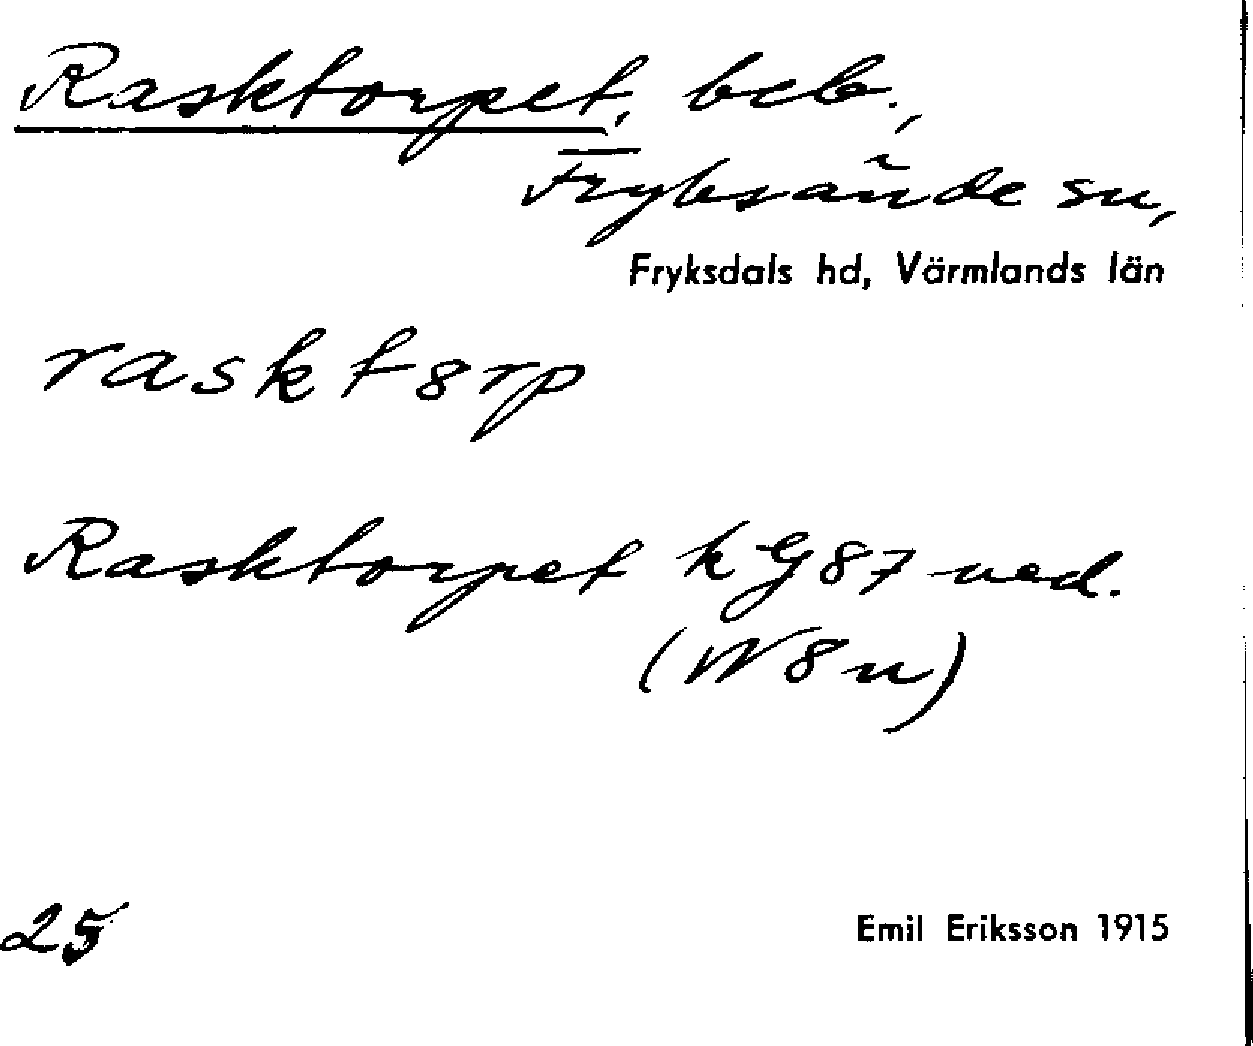 Rasktorpet, beb.,
Fryksände sn,
Fryksdals hd, Värmlands län
raskt8rp
Rasktorpet kG87 ned.
(N8n)
25
Emil Eriksson 1915